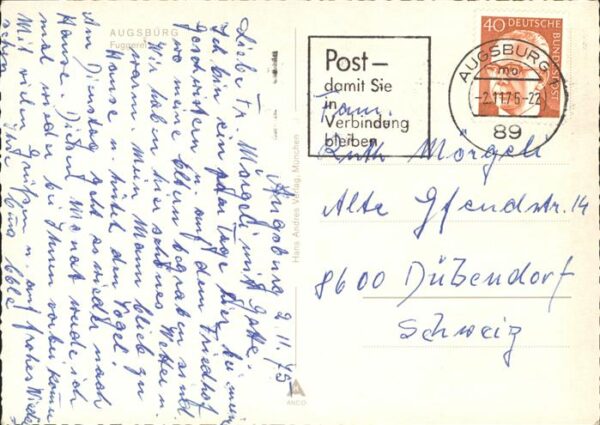 AUGSBURG
Fuggerei
Augsburg 2.11.75
Liebe Fr. Mörgeli mit Gatte,
Ich bin ein paar Tage hier bei meinen
Geschwistern u. auf dem Friedhof
wo meine Eltern begraben sind.
Wir haben hier schönes Wetter u.
warm. Mein Mann blieb zu
Hause u. hütet den Vogel.
Am Dienstag geht es wieder nach
Hause. Diesen Monat werde ich
mal wieder bei Ihnen vorbei kommen
Mit vielen Grüßen u. auf frohes
Ihre
Hans Andres Verlag, München
ANCO
Post –
damit Sie
in
Verbindung
bleiben
40 DEUTSCHE BUNDESPOST
AUGSBURG
mo
-2.11.75-22
89
Fam.
Ruth Mörgeli
Alte Gfennstr. 14
8600 Dübendorf
Schweiz